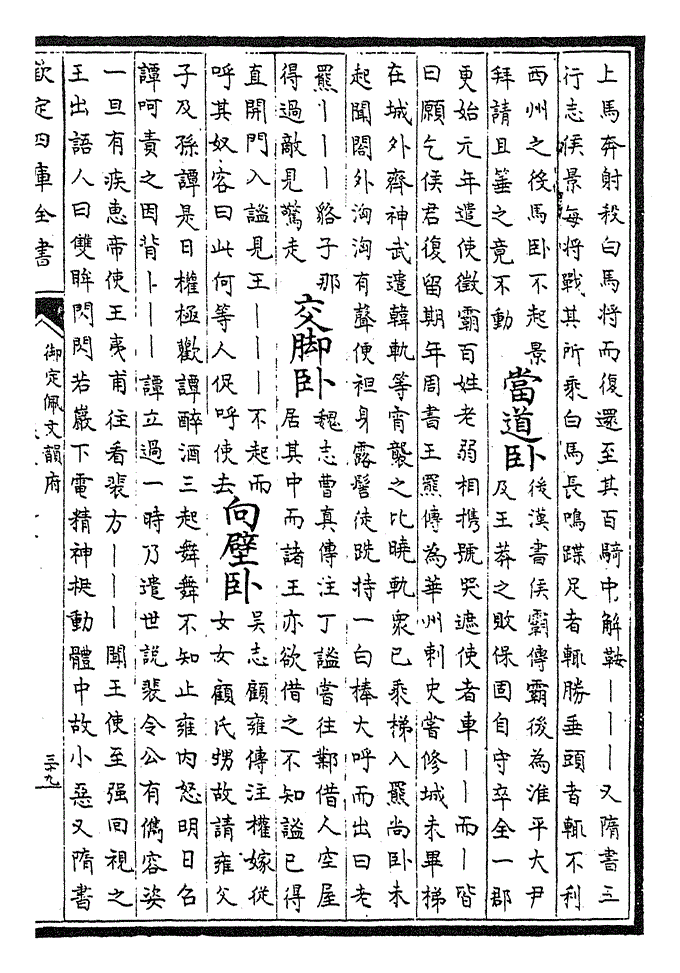 上馬奔射殺白馬將而復還至其百騎中解鞍〡〡〡又隋書三
行志侯景每將戰其所乘白馬長鳴蹀足者輒勝垂頭者輒不利
西州之役馬卧不起景
拜請且箠之竟不動
當道卧
後漢書侯霸傳霸後為淮平大尹
及王莽之敗保固自守卒全一郡
更始元年遣使徵霸百姓老弱相攜號哭遮使者車〡〡而〡皆
曰願乞侯君復留期年周書王羆傳為華州刺史嘗修城未畢梯
在城外齊神武遣韓軌等宵襲之比曉軌衆已乘梯入羆尚卧未
起聞閤外洶洶有聲便袒身露髻徒跣持一白棒大呼而出曰老
羆〡〡〡貉子那
得過敵見驚走
交脚卧
魏志曹真傳注丁謐嘗往鄴借人空屋
居其中而諸王亦欲借之不知謐已得
直開門入謐見王〡〡〡不起而
呼其奴客曰此何等人促呼使去
向壁卧
吳志顧雍傳注權嫁從
女女顧氏甥故請雍父
子及孫譚是日權極歡譚醉酒三起舞舞不知止雍内怒明日召
譚呵責之因背卜〡〡〡譚立過一時乃遣世說裴令公有儁容姿
一旦有疾恵帝使王夷甫往看裴方〡〡〡聞王使至强回視之
王出語人曰雙眸閃閃若巖下電精神挺動體中故小惡又隋書
欽定四庫全書
御定佩文韻府
三十九